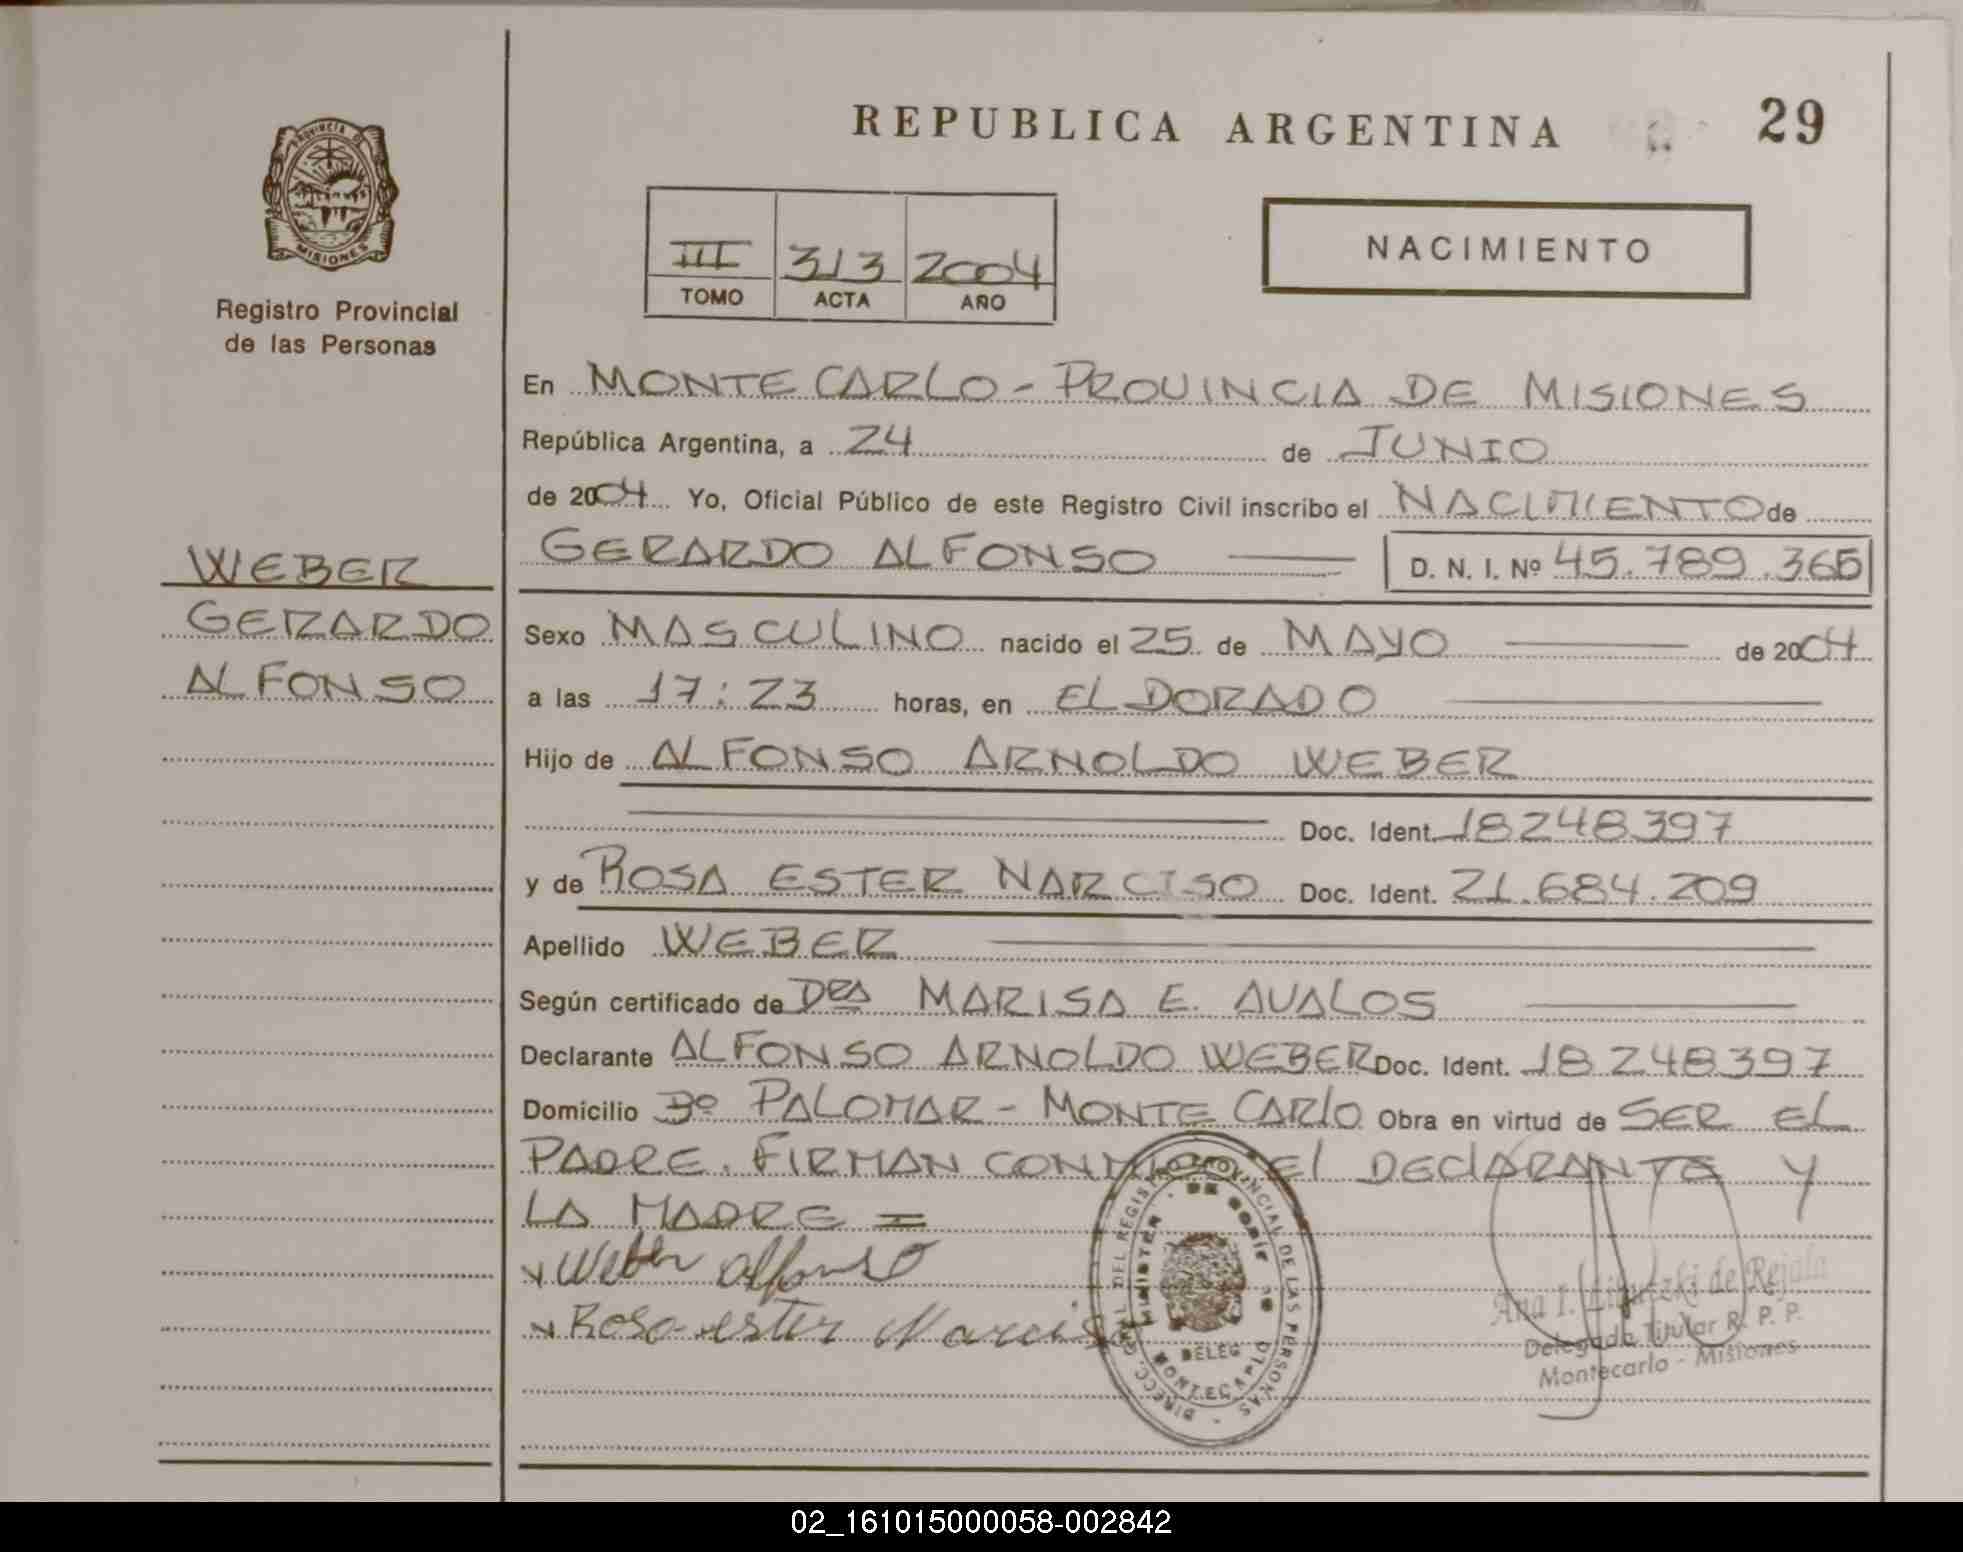 REPUBLICA ARGENTINA
29
PROVINCIA DE
MISIONES
Registro Provincial
de las Personas
III 313 2004
TOMO ACTA AÑO
NACIMIENTO
WEBER
GERARDO
ALFONSO
En MONTECARLO - PROVINCIA DE MISIONES
República Argentina, a 24 de JUNIO
de 2004 Yo, Oficial Público de este Registro Civil inscribo el NACIMIENTO de
GERARDO ALFONSO D. N. I. Nº 45.789.365
Sexo MASCULINO nacido el 25 de MAYO de 2004
a las 17:23 horas, en ELDORADO
Hijo de ALFONSO ARNOLDO WEBER
Doc. Ident. 18248397
y de ROSA ESTER NARCISO Doc. Ident. 21.684.209
Apellido WEBER
Según certificado de DRA MARISA E. AVALOS
Declarante ALFONSO ARNOLDO WEBER Doc. Ident. 18248397
Domicilio Bº PALOMAR - MONTECARLO Obra en virtud de SER EL
PADRE. FIRMAN CONMIGO El DEClARANTE Y
LA MADRE =
Weber Alfonso
Rosa ester Narciso
DIRECC. GRAL DEL REGISTRO PROVINCIAL DE LAS PERSONAS
DELEG
MONTECARLO
Ana I. de Rejala
Delegada Titular R. P. P.
Montecarlo - Misiones
02_161015000058-002842